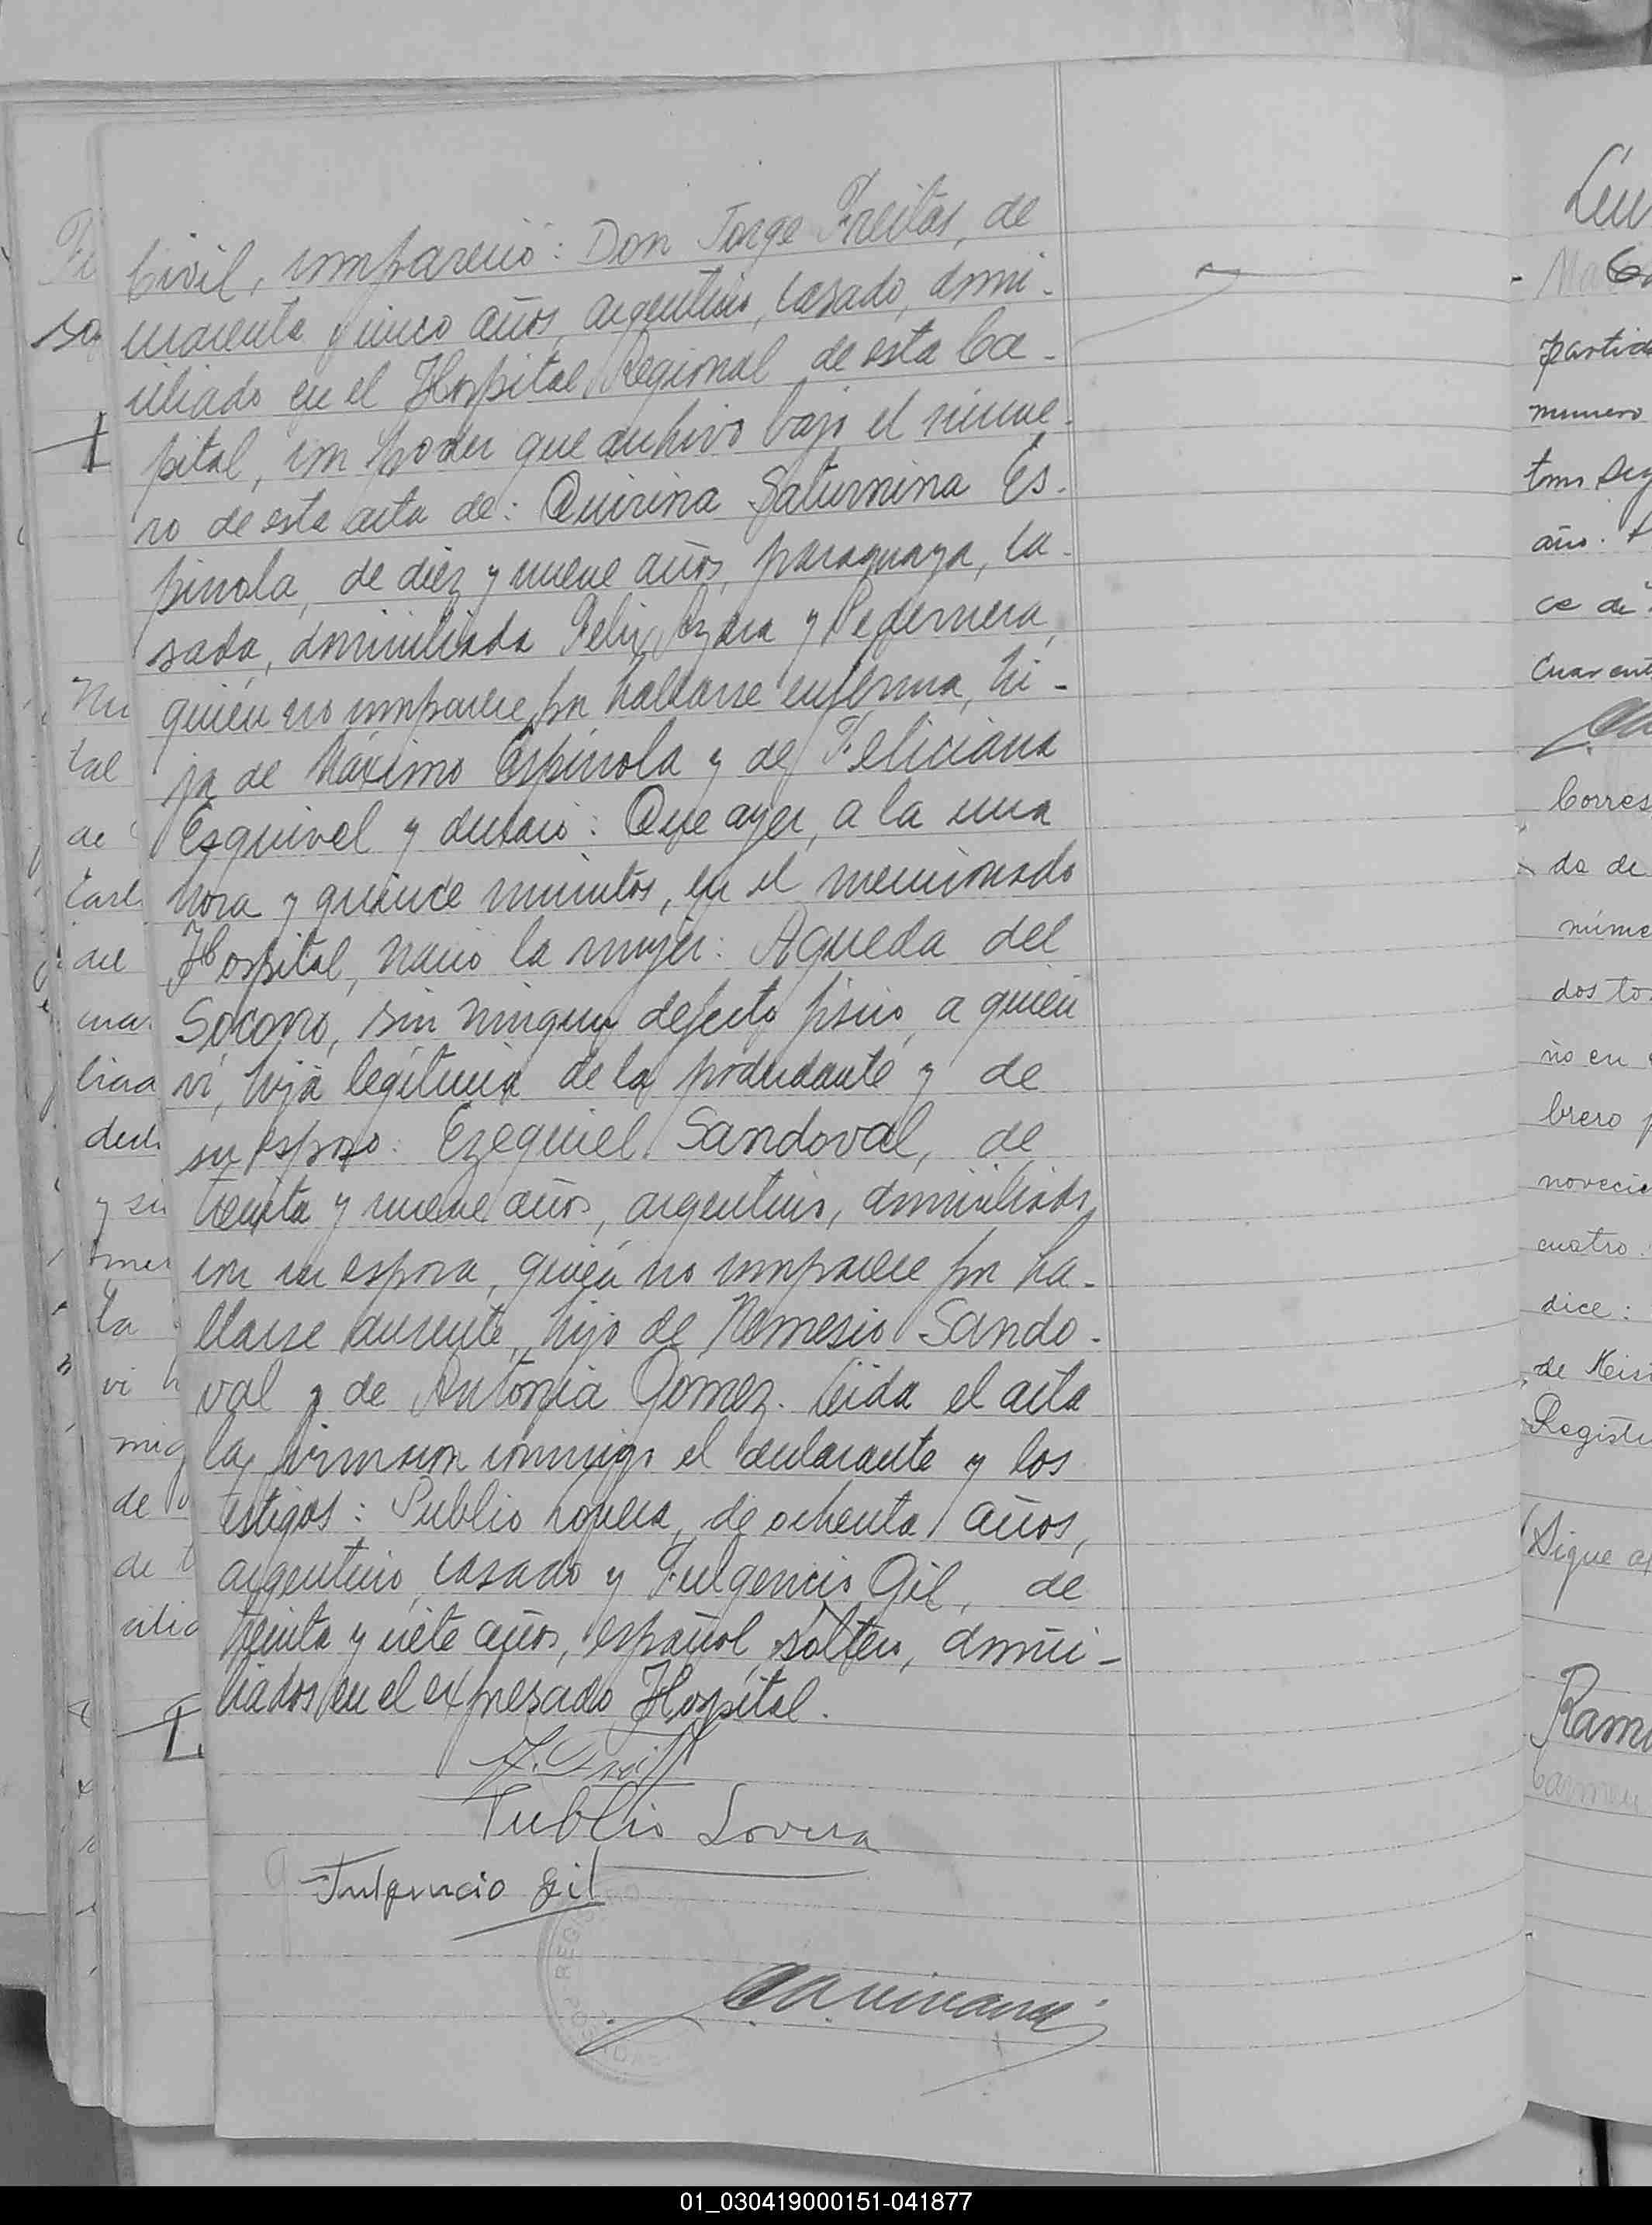 Civil, compareció: Don Jorge Freitas, de
cuarenta y cinco años, argentino, casado, domi-
ciliado en el Hospital Regional de esta Ca-
pital, con poder que archivo bajo el núme-
ro de esta acta de: Quirina Saturnina Es-
pinola, de diez y nueve años, paraguaya, ca-
sada, domiciliada Felix Azara y Pedernera,
quién no comparece por hallarse enferma, hi-
ja de Máximo Espinola y de Feliciana
Esquivel y declaró: Que ayer, a la una
hora y quince minutos, en el mencionado
Hospital, nació la mujer: Agueda del
Socorro, sin ningun defecto fisico, a quién
ví, hija legítima de la poderdante y de
su esposo: Ezequiel Sandoval, de
treinta y nueve años, argentino, domiciliado
con su esposa, quién no comparece por ha-
llarse ausente, hijo de Nemesio Sando-
val y de Antonia Gomez. Leída el acta
la firmaron conmigo el declarante y los
testigos: Publio Lovera, de ochenta años,
argentino, casado y Fulgencio Gil, de
treinta y siete años, español, soltero, domici-
liados en el expresado Hospital.
Publio Lovera
Fulgencio Gil
partid
numero
año.
ce de
Cuarent
Corres
da de
núme
dos to
ño en
brero
novecie
cuatro
dice:
Registr
(Sigue
Rami
01_030419000151-041877